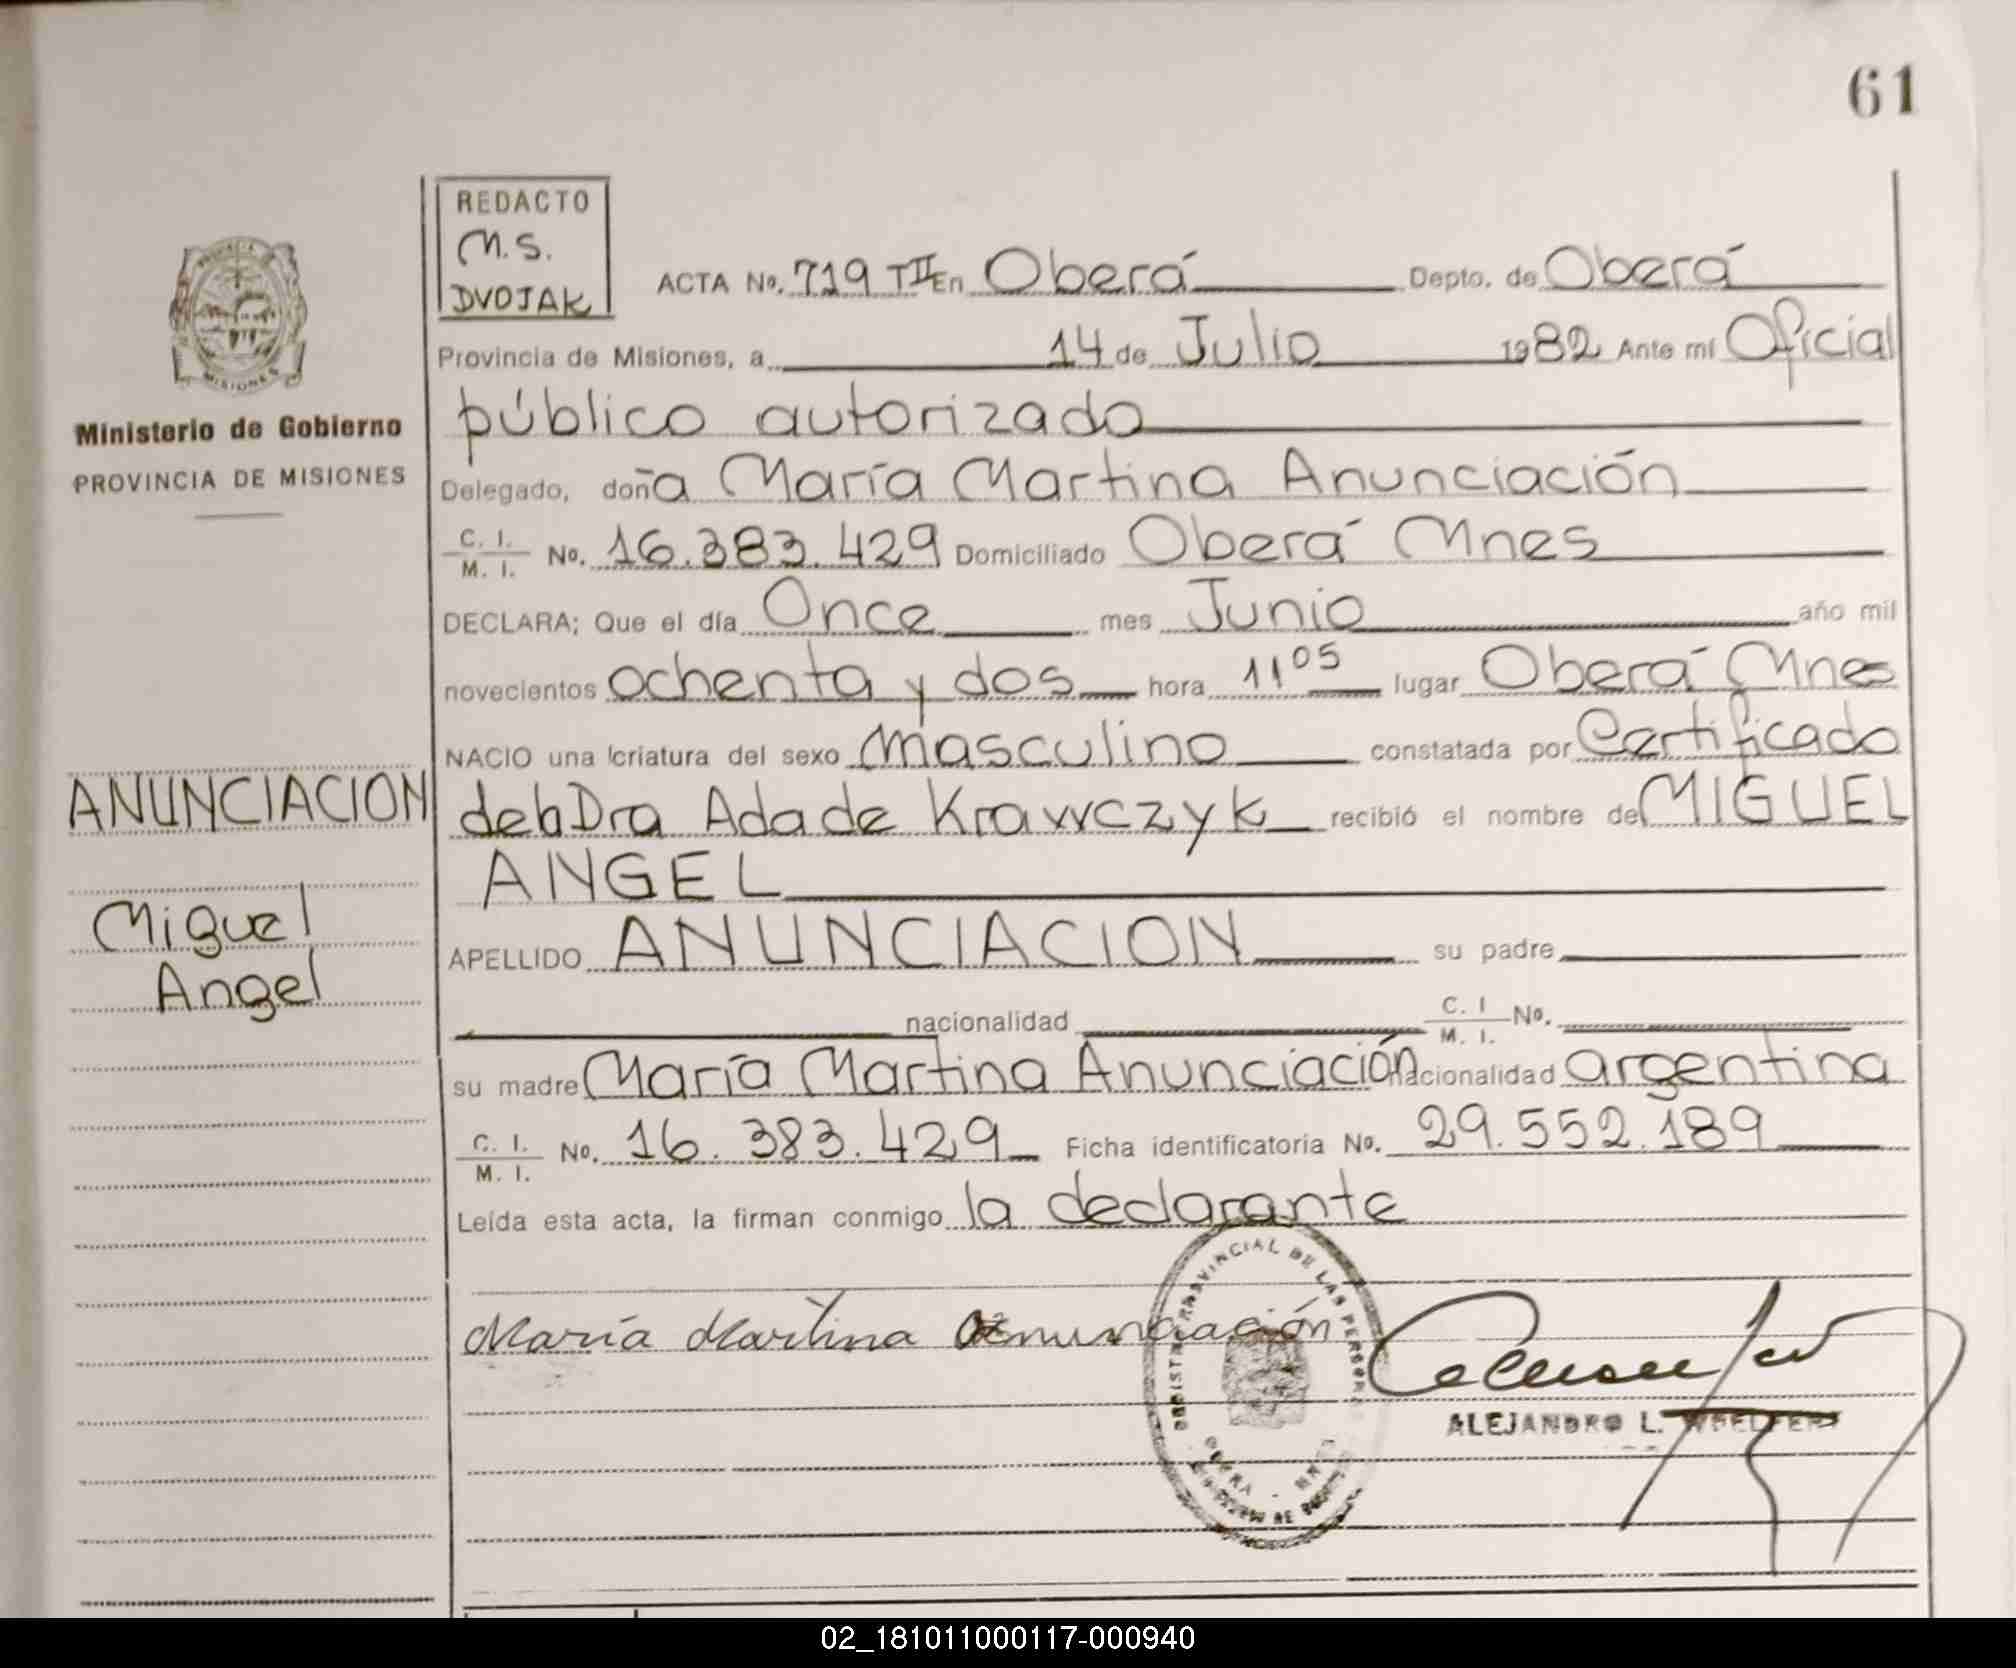 61
REDACTO
M.S.
DVOJAK
ACTA No. 719 TII En Oberá Depto. de Oberá
Provincia de Misiones, a 14 de Julio 1982 Ante mí Oficial
público autorizado
Ministerio de Gobierno
PROVINCIA DE MISIONES
Delegado, doña María Martina Anunciación
C. I.
M. I. No. 16.383.429 Domiciliado Oberá Mnes
DECLARA; Que el día Once mes Junio año mil
novecientos ochenta y dos hora 11 05 lugar Oberá Mnes
NACIO una criatura del sexo masculino constatada por Certificado
de la Dra Ada de Krawczyk recibió el nombre de MIGUEL
ANGEL
ANUNCIACION
Miguel
Angel
APELLIDO ANUNCIACION su padre
nacionalidad C. I
M. I. No.
su madre María Martina Anunciación nacionalidad argentina
C. I.
M. I. No. 16.383.429 Ficha identificatoria No. 29.552.189
Leída esta acta, la firman conmigo la declarante
María Martina Anunciación
PROVINCIAL DE LAS PERSONAS
ALEJANDRO L. WOELFERT
02_181011000117-000940